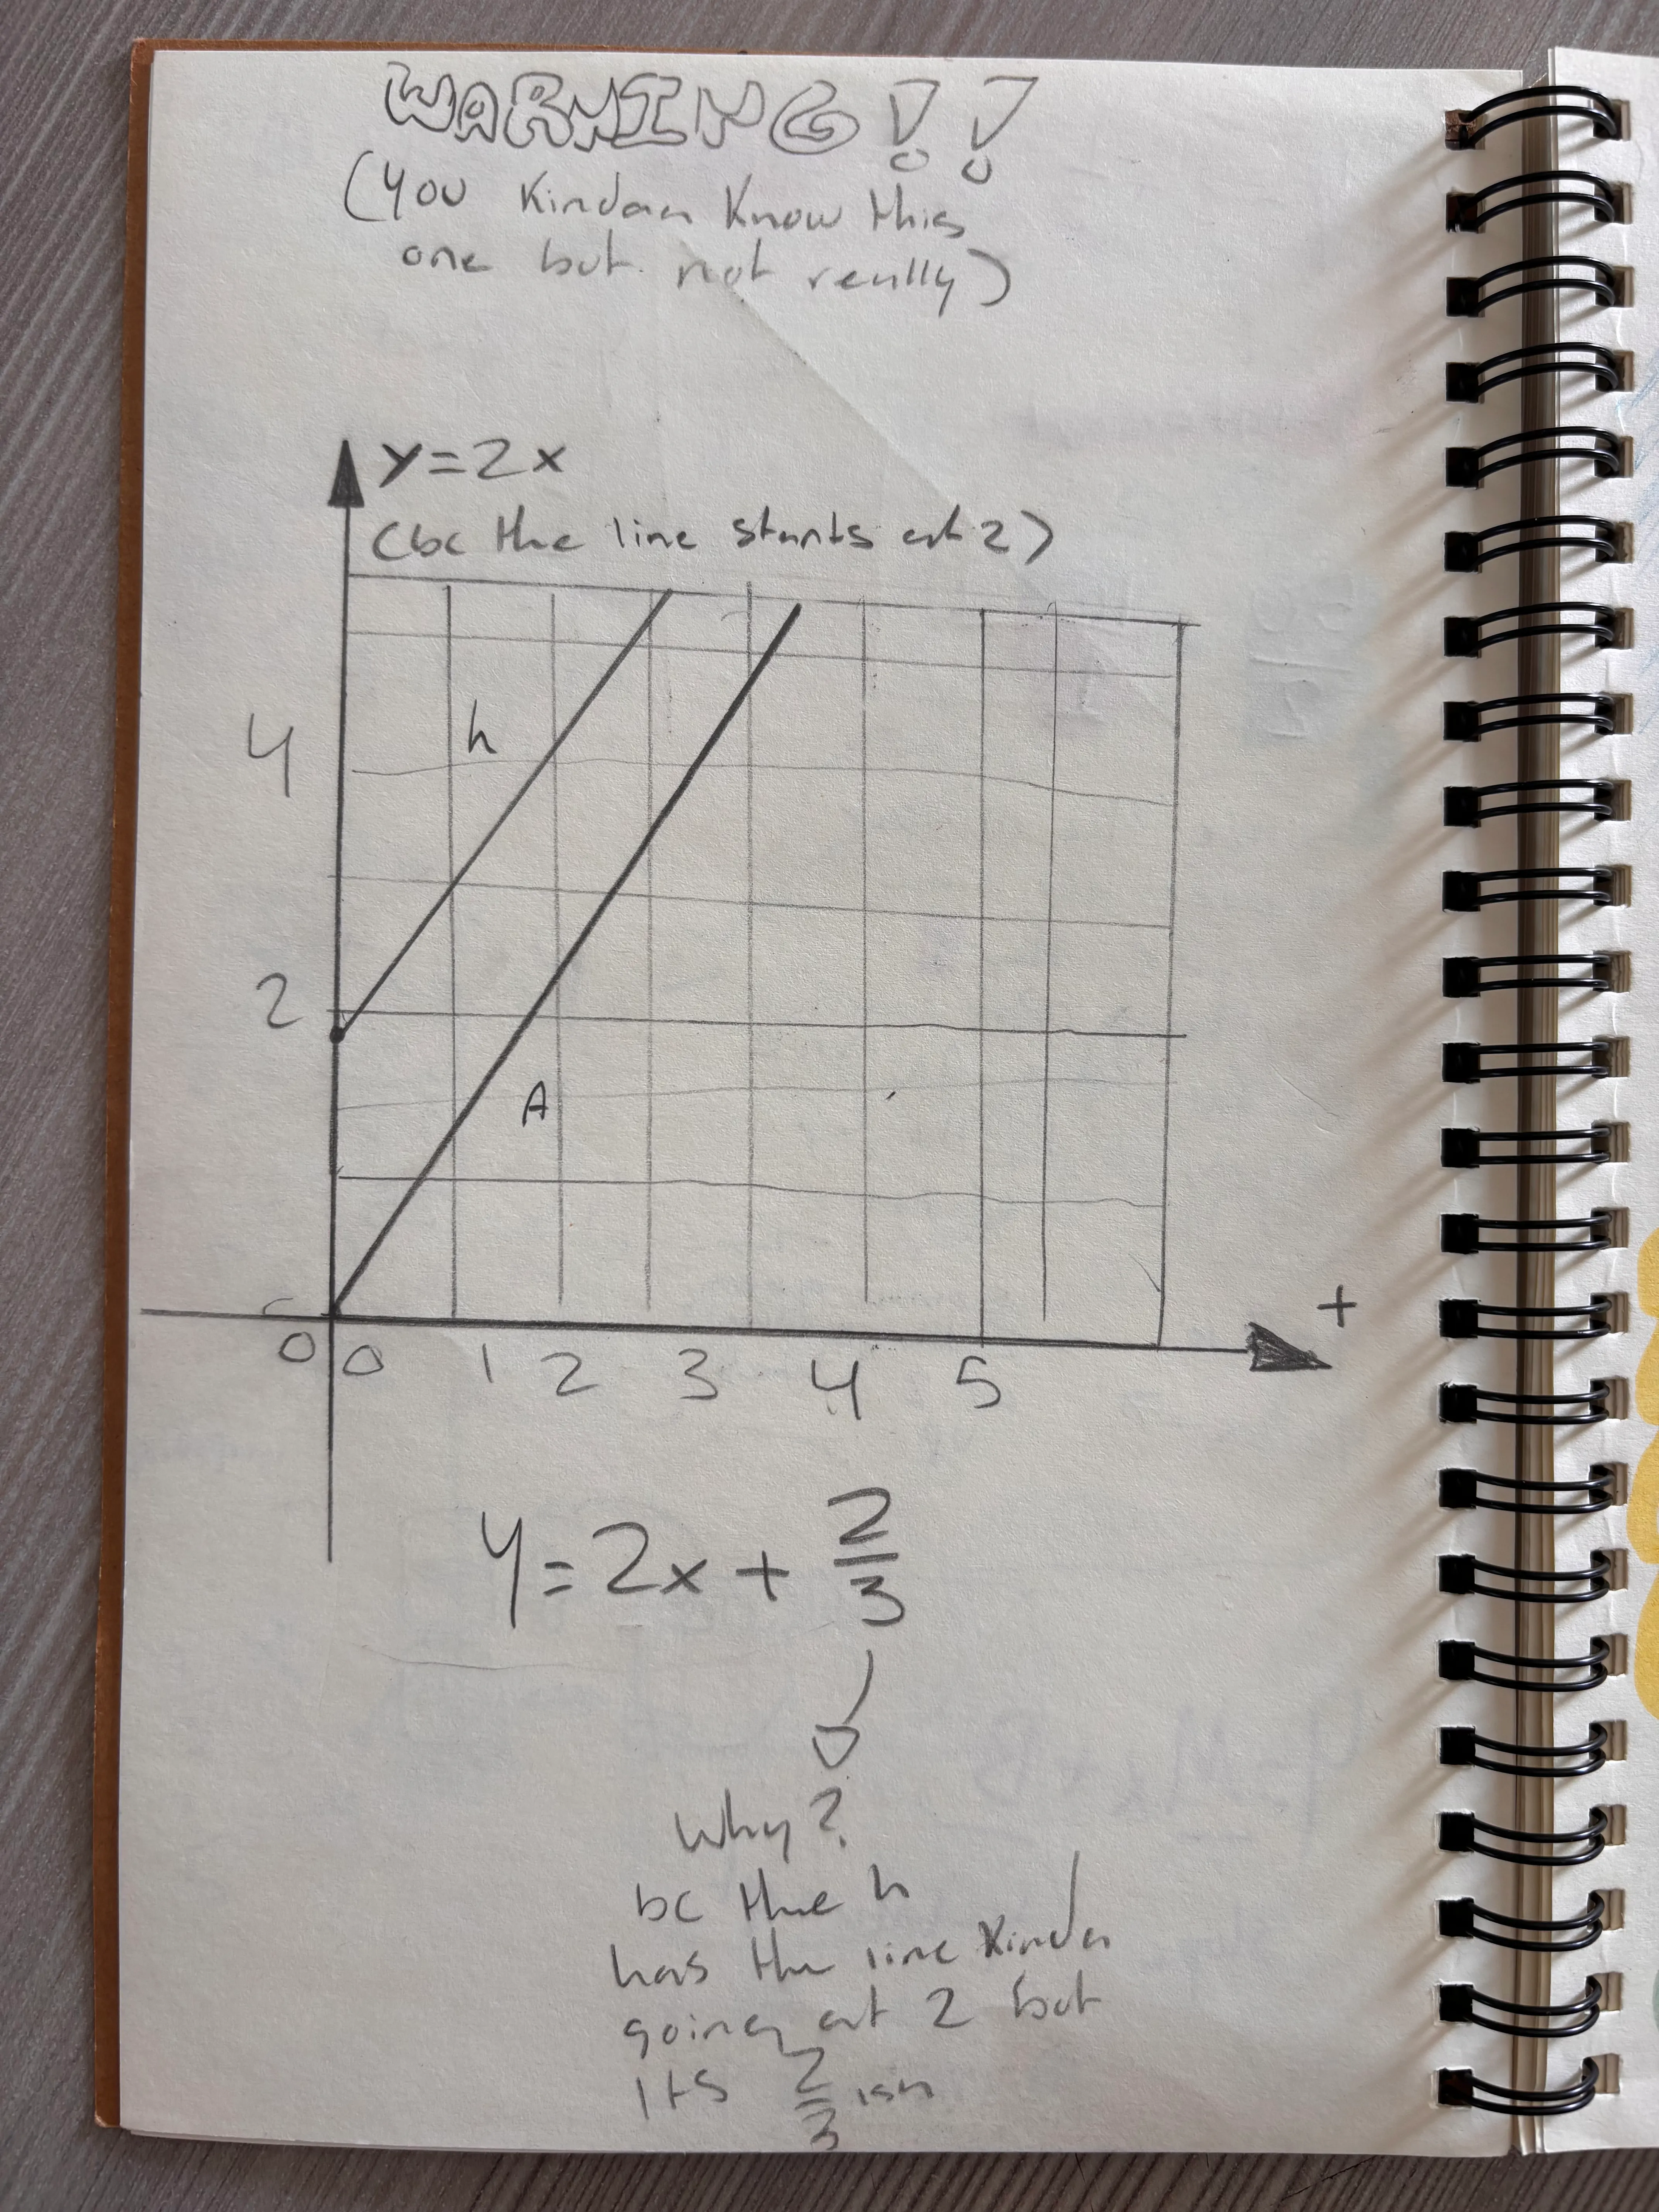 WARNING!!
(you Kindaa Know this
one but not really)
y=2x
(bc the line starts at 2)
h
4
2
A
+
0 0 1 2 3 4 5
y=2x + 2/3
Why?
bc the h
has the line kinda
going at 2 but
its 2/3 ish